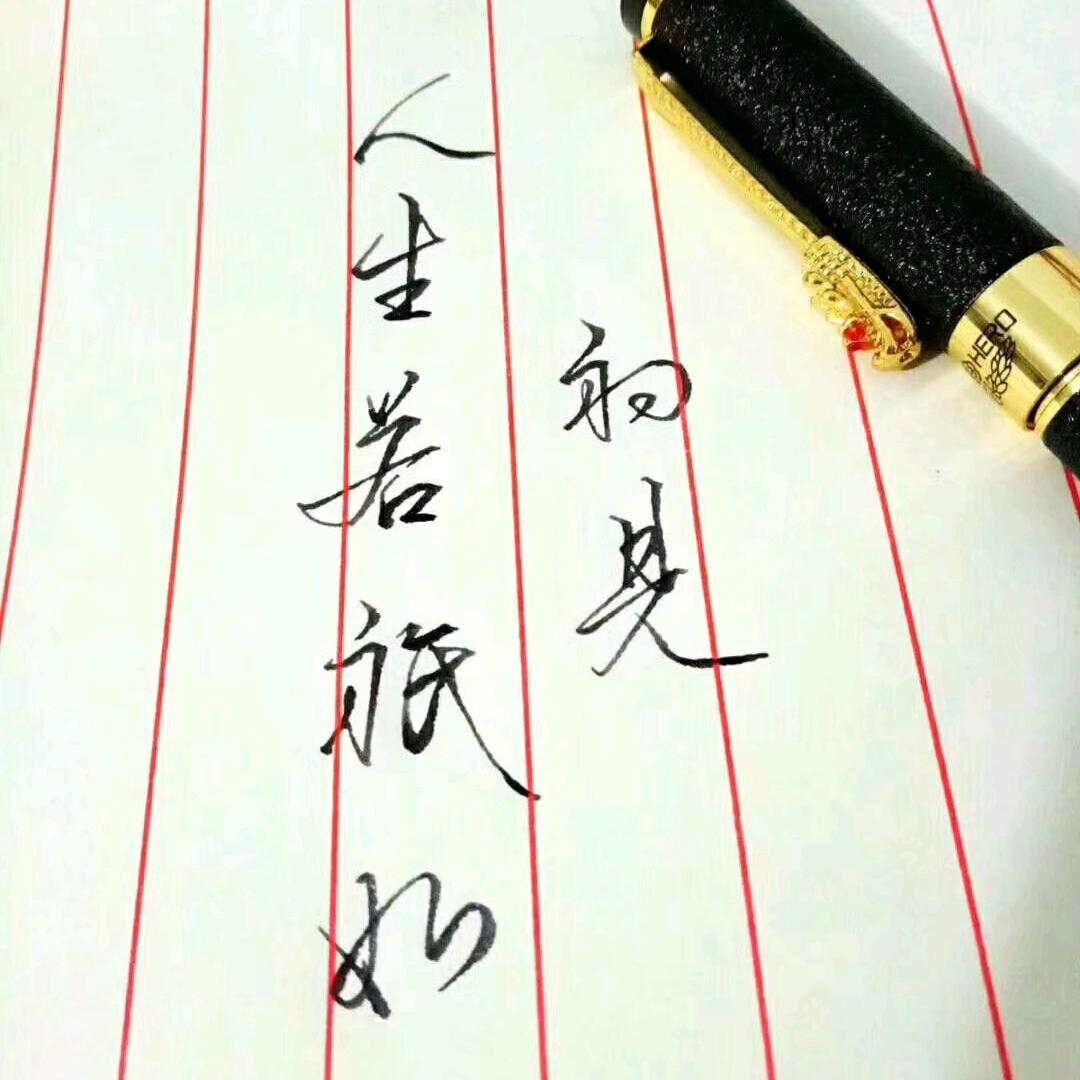 人生若祇如
初見
HERO